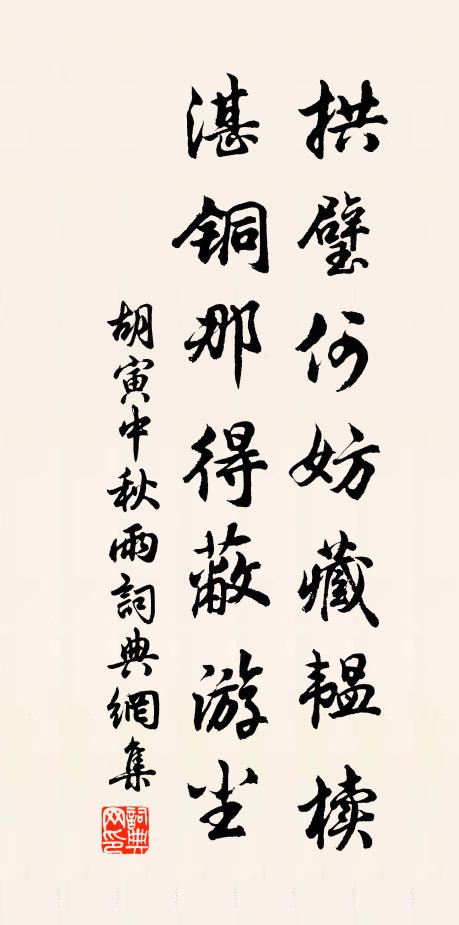 拱璧何妨藏韫椟
湛铜那得蔽游尘
胡寅中秋雨詞典網集
詞典网印